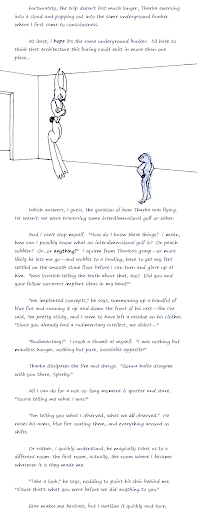 Fortunately, the trip doesn't last much longer, Tharka swerving
into a cloud and popping out into the same underground bunker
where I first came to consciousness.
At least, I hope it's the same underground bunker. I'd hate to
think that architecture this boring could exist in more than one
place...
Which answers, I guess, the question of how Tharka was flying.
He wasn't: we were traversing some interdimensional gulf or other.
And I can't stop myself. "How do I know these things? I mean,
how can I possibly know what an interdimensional gulf is? Or peach
cobbler? Or...or anything?" I squirm from Tharka's grasp—or more
likely he lets me go—and wobble to a landing, have to get my feet
settled on the smooth stone floor before I can turn and glare up at
him. "Was Scratch telling the truth about that, too? Did you and
your fellow sorcerers implant ideas in my head?"
"We implanted concepts," he says, summoning up a handful of
blue fire and running it up and down the front of his vest—like I've
said, I'm pretty sticky, and I seem to have left a residue on his clothes.
"Since you already had a rudimentary intellect, we didn't—"
"Rudimentary?" I cock a thumb at myself. "I was nothing but
mindless hunger, nothing but pure, insatiable appetite!"
Tharka dissipates the fire and shrugs. "Gonna hafta disagree
with you there, Sparky."
All I can do for a not-so-long moment is sputter and stare.
"You're telling me what I was?"
"I'm telling you what I observed, what we all observed." He
raises his arms, blue fire coating them, and everything around us
shifts.
Or rather, I quickly understand, he magically takes us to a
different room: the first room, actually, the room where I became
whatever it is they made me.
"Take a look," he says, nodding to point his chin behind me.
"'Cause that's what you were before we did anything to you."
Fear makes me hesitate, but I swallow it quickly and turn.